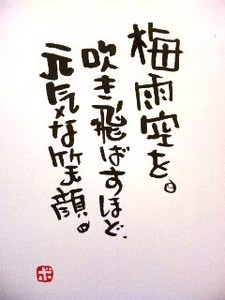 梅雨空を。
吹き飛ばすほど、
元気な笑顔。
ボ